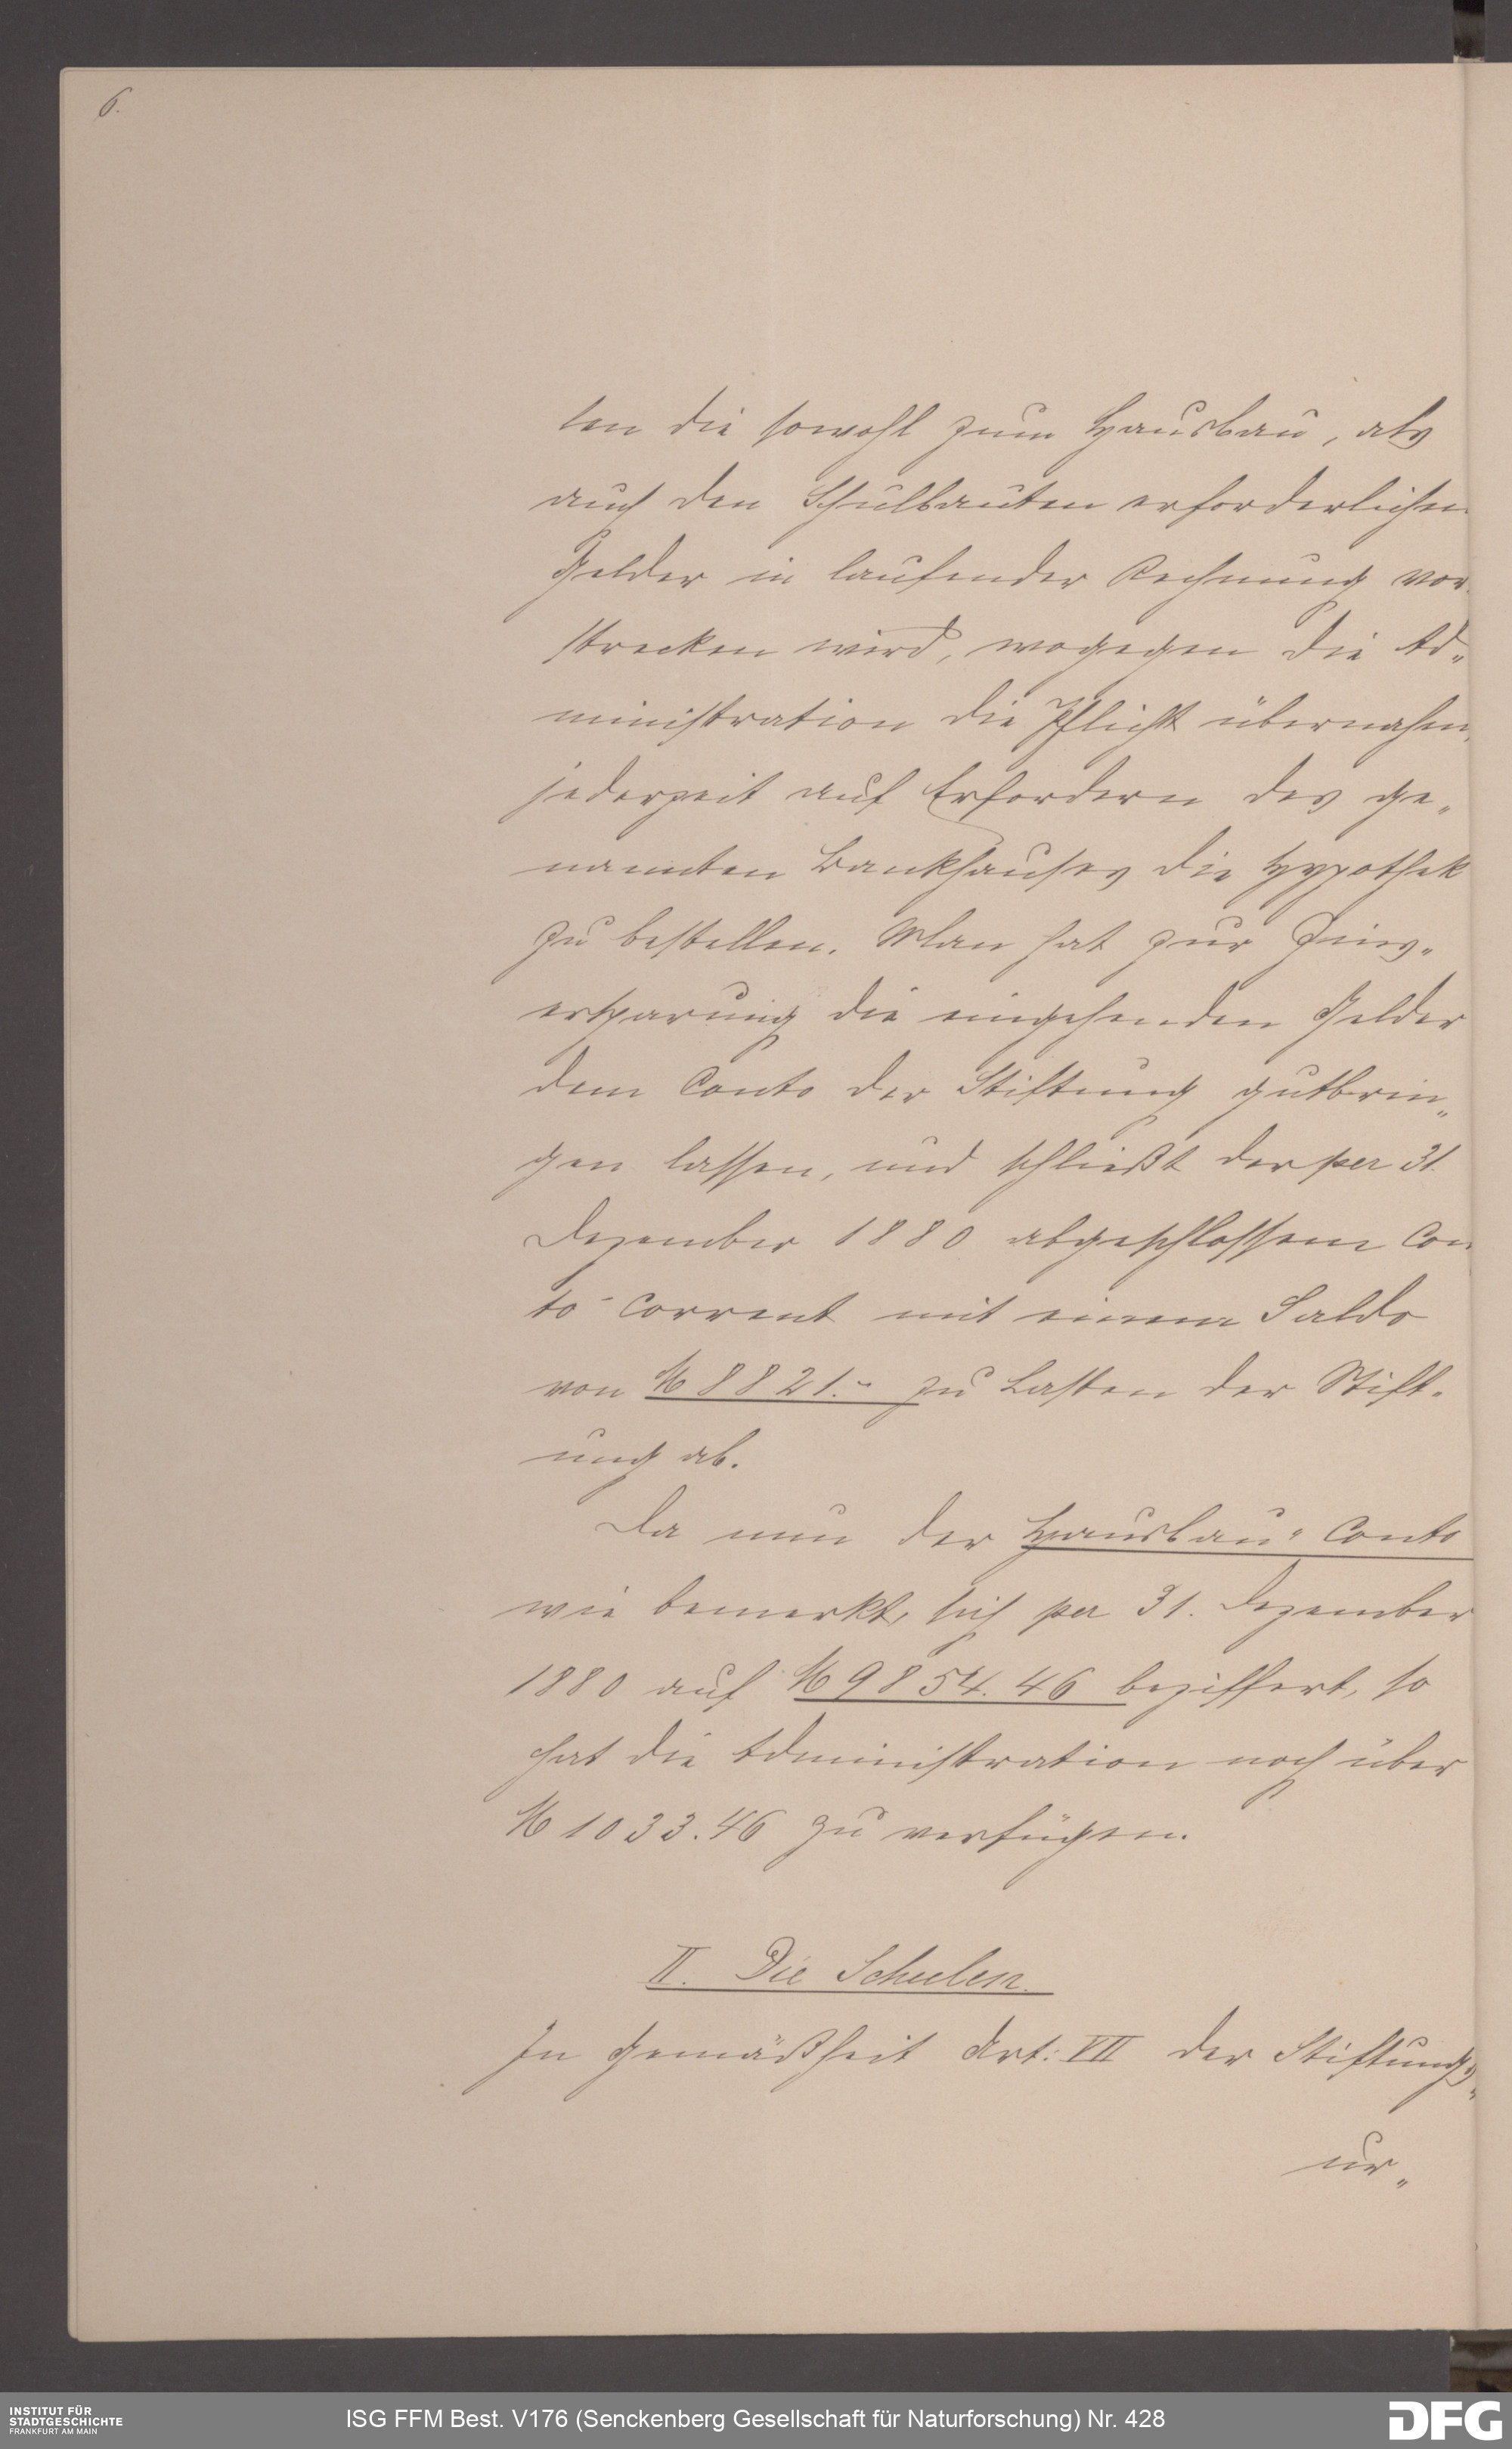 6.
len die sowohl zum Hausbau, als
auch den Schulbauten erforderlichen
Gelder in laufender Rechnung vor-
strecken wird, wogegen die Ad„
ministration die Pflicht übernahm,
jederzeit auf Erfordern des ge„
nannten Bankhauses die Hypothek
zu bestellen. Man hat zur Zins„
ersparung die eingehenden Gelder
dem Conto der Stiftung gutbrin„
gen lassen, und schließt der per 31.
Dezember 1880 abgeschlossene Con
to-Corrent mit einem Saldo
von M 8821.- zu Lasten der Stift-
ung ab.
Da nun der Hausbau-Conto
wie bemerkt, sich per 31. Dezember
1880 auf M 9854.46 beziffert, so
hat die Administration noch über
M 1033.46 zu verfügen.
II. Die Schulen.
In Gemäßheit Art: VII der Stiftungs„
ur„
INSTITUT FÜR
STADTGESCHICHTE
FRANKFURT AM MAIN
ISG FFM Best. V176 (Senckenberg Gesellschaft für Naturforschung) Nr. 428
DFG